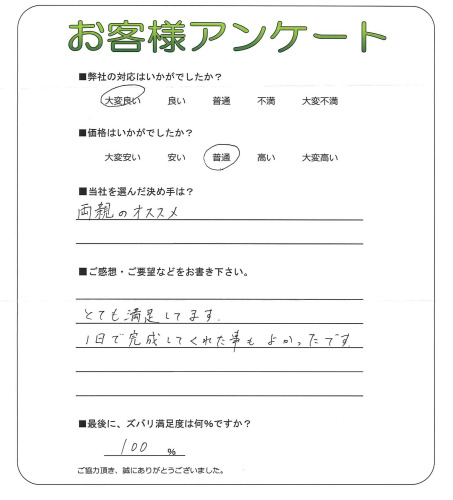 お客様アンケート
■弊社の対応はいかがでしたか？
大変良い 良い 普通 不満 大変不満
■価格はいかがでしたか？
大変安い 安い 普通 高い 大変高い
■当社を選んだ決め手は？
両親のオススメ
■ご感想・ご要望などをお書き下さい。
とても満足してます.
1日で完成してくれた事もよかったです.
■最後に、ズバリ満足度は何%ですか？
100 %
ご協力頂き、誠にありがとうございました。